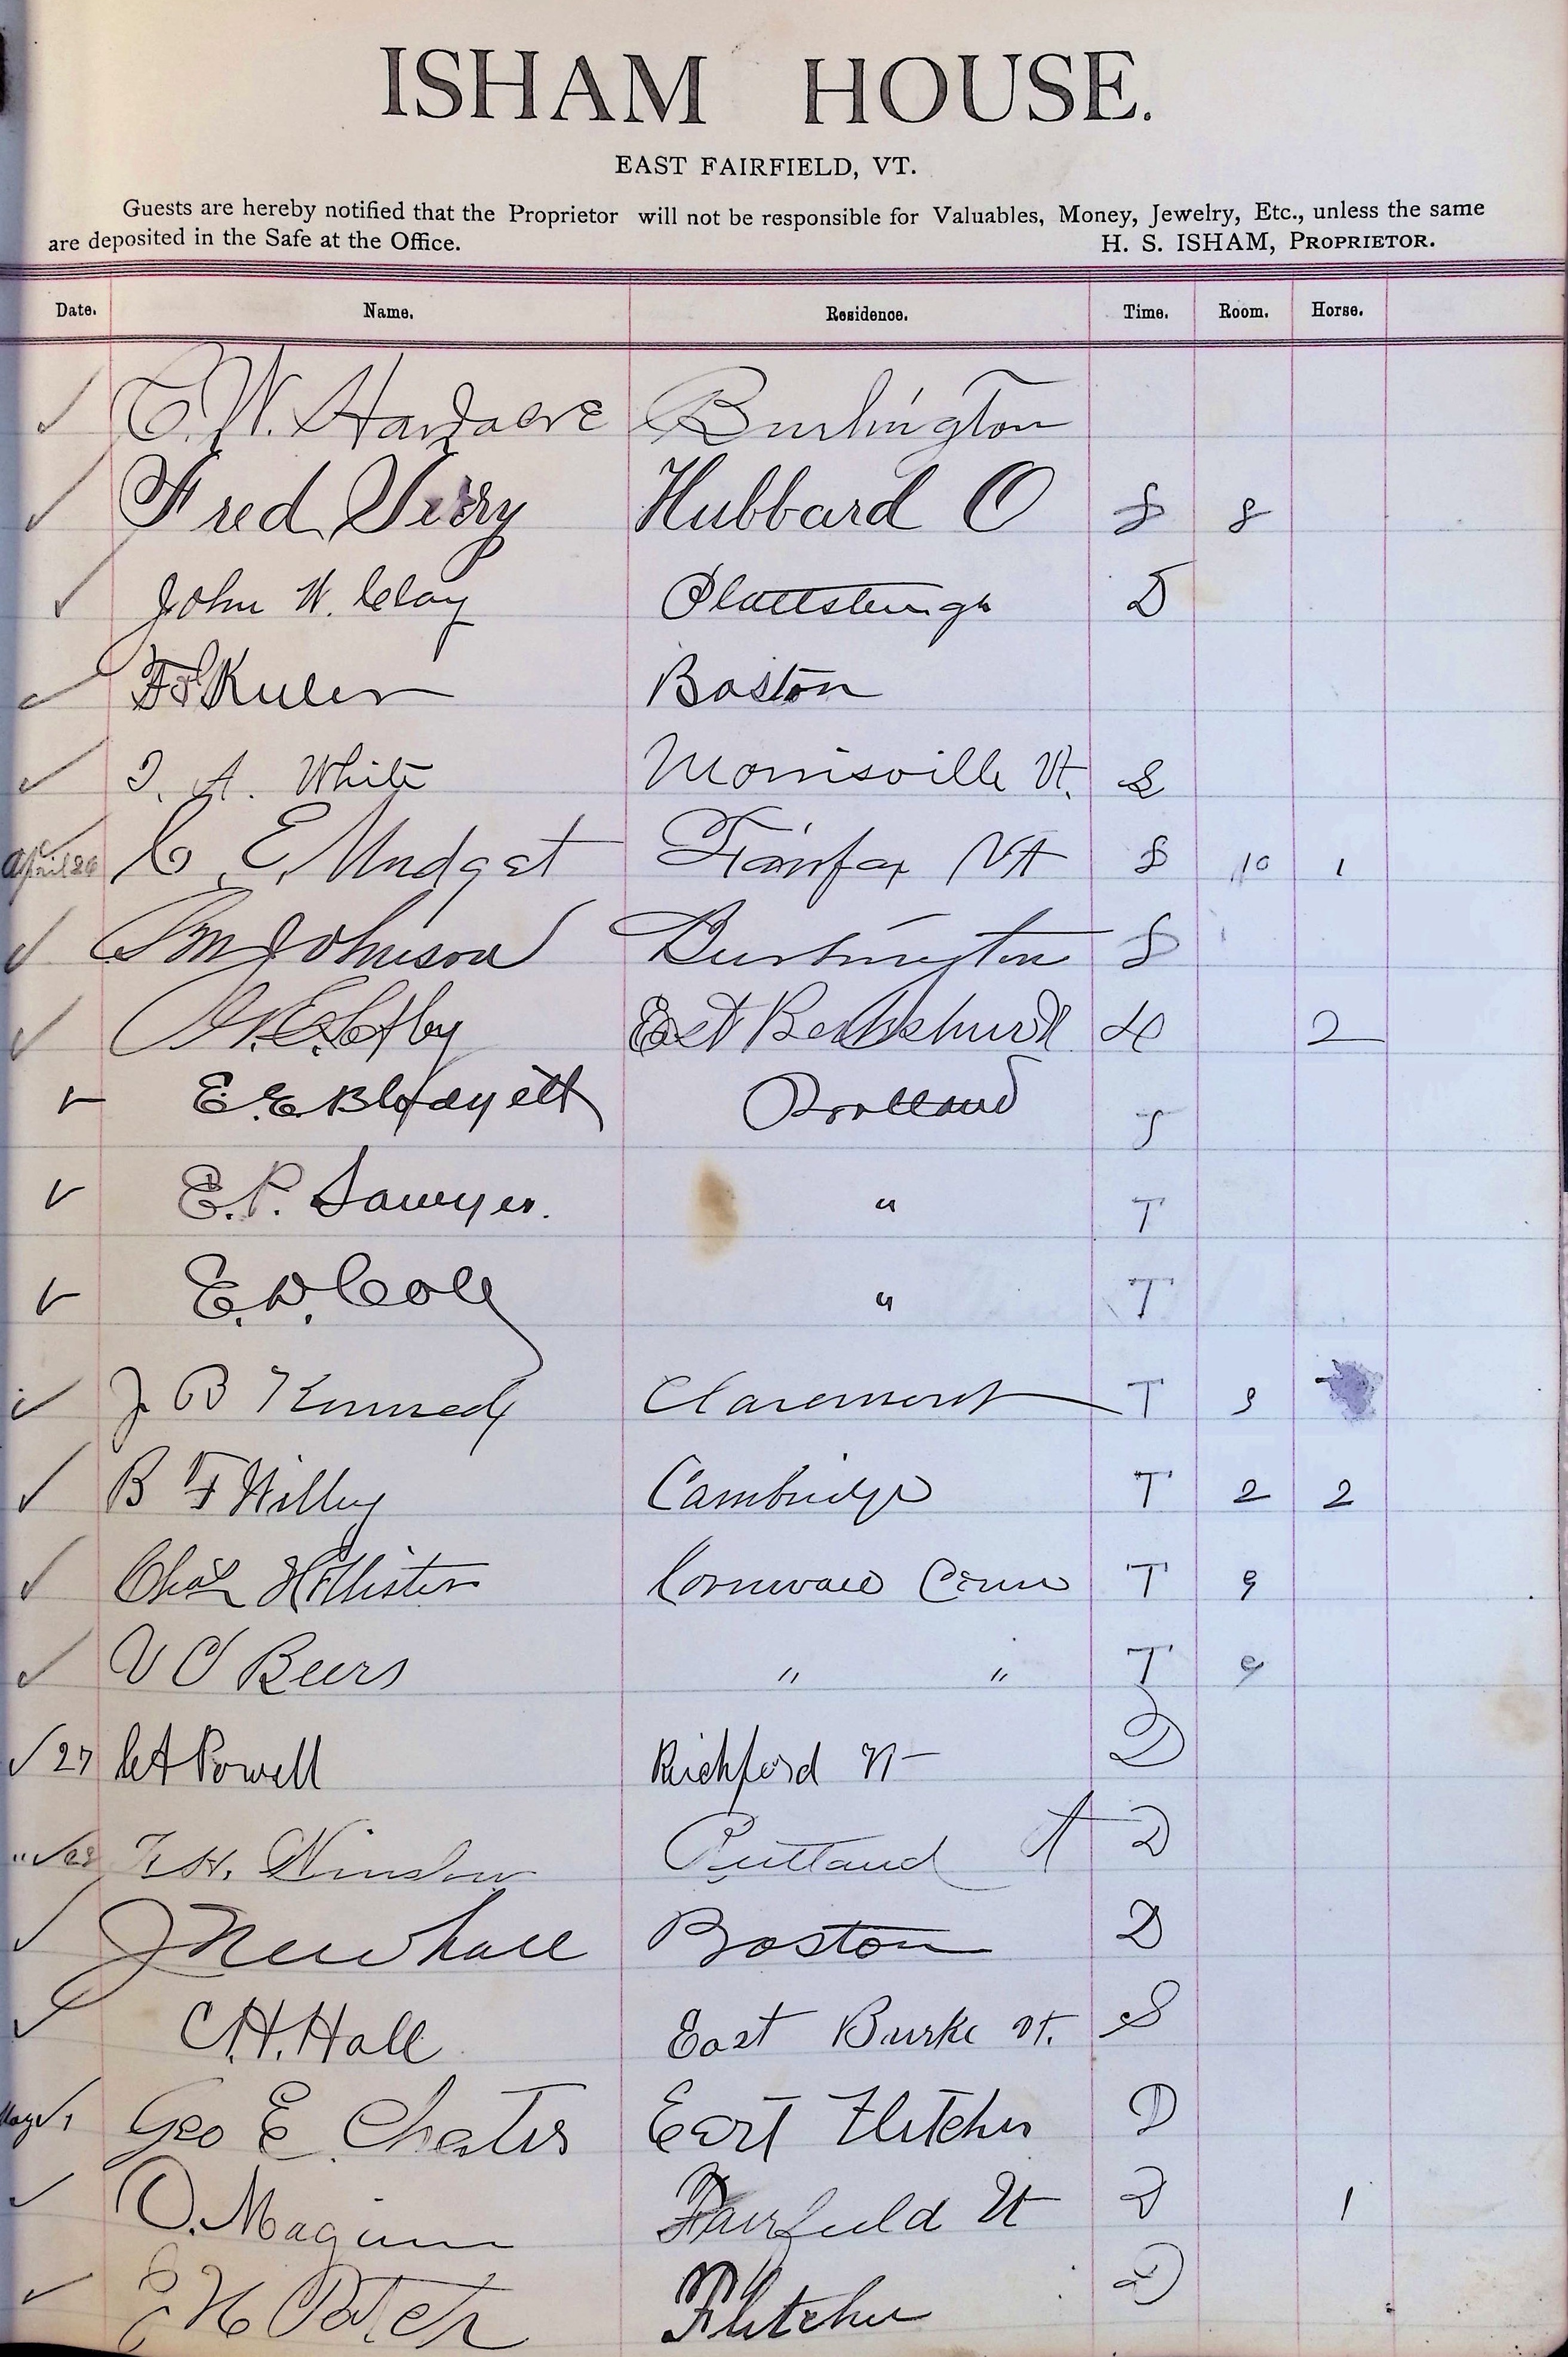 ISHAM HOUSE.
EAST FAIRFIELD, VT.
Guests are hereby notified that the Proprietor will not be responsible for Valuables, Money, Jewelry, Etc., unless the same
are deposited in the Safe at the Office. H. S. ISHAM, PROPRIETOR.
Date. Name. Residence. Time. Room. Horse.
✓ W. Burlington
✓ Fred Hubbard O S 8
✓ John W. Clay Plattsburgh D
✓ Boston
✓ A. White Morrisville Vt. S
April 26 C. E. Mudget Fairfax Vt S 10 1
✓ Johnson Burlington S
✓ East 2
✓ E. E. Blodgett Portland T
✓ E. P. Sawyer. " T
✓ E. W. Cole " T
✓ J. B Kennedy Claremont T 9
✓ B F Willey Cambridge T 2 2
✓ Chas Hollister Cornwall Conn T 9
✓ V C Beers " " T 9
✓ 27 C A Powell Richford Vt D
" ✓ 28 H. Winslow Rutland D
✓ J Newhall Boston D
✓ C. H. Hall East Burke Vt. S
May ✓ 1 Geo E. Chester East Fletcher D
✓ O. Maginn Fairfield Vt D 1
✓ Fletcher D